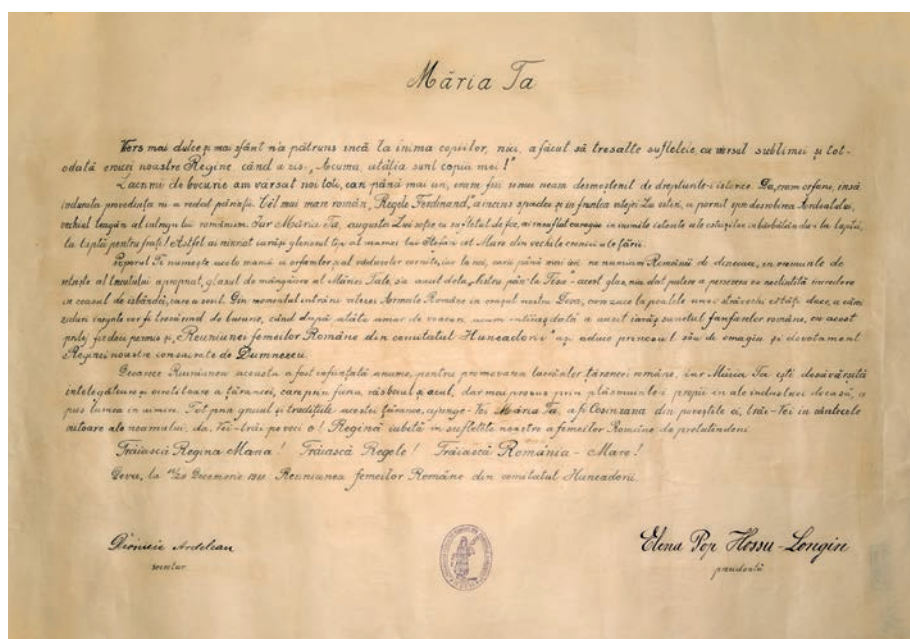 Măria Ta
Vers mai dulce și mai sfânt n'a pătruns încă la inima copiilor, nici, a făcut să tresalte sufletele, ca versul sublimei și tot-
odată eroicei noastre Regine când a zis: „Acuma, atâția sunt copiii mei!"
Lacrimi de bucurie am vărsat noi toți, cari până mai eri, eram fiii unui neam desmoștenit de drepturile-i istorice. Da, eram orfani, însă
îndurata provedința ni-a redat părinții. Cel mai mare român, „Regele Ferdinand," a încins spada și în fruntea vitejei Lui oștiri, a pornit spre desrobirea Ardealului,
vechiul leagăn al întregului românism. Iar Măria Ta, augusta Lui soție cu sufletul de foc, ai însuflat curagiu în inimile istovite ale ostașilor îmbărbătându-i la luptă,
la luptă pentru frați! Astfel ai înviat iarăși glorosul tip al mamei lui Ștefan cel Mare din vechile cronici ale țării.
Poporul Te numește acolo mamă a orfanilor și al văduvelor cernite, iar la noi, carii până mai ieri ne numiam Românii de dincolo, în vremurile de
restriște al trecutului apropiat, glasul de mângâiere al Măriei Tale, sia auzit dela „Nistru pân' la Tisa" – acest glas, nia dat putere a persevera cu neclintită încredere
în ceasul de isbândă, care a sosit. Din momentul intrării vitezei Armate Române în orașul nostru Deva, care zace la poalele unei străvechi cetăți dace, a cărei
ziduri vor fi tresărind de bucurie, când după atâta amar de veacuri, acum întâiaș dată a auzit iarăș sunetul fanfarelor române, cu acest
prilej fie deci permis și „Reuniunei femeilor Române din comitatul Huneadorii" a-și aduce prinosul său de omagiu și devotament
Reginei noastre consacrate de Dumnezeu.
Deoarece Reuniunea aceasta a fost înființată anume, pentru promovarea lucrurilor țărancei române, iar Măria Ta ești desăvârșita
înțelegătoare și ocrotitoare a țărancei, care prin furca, războiul și acul, dar mai presus prin plăsmuirile-i proprii în ale industriei de casă, a
pus lumea în uimire. Tot prin graiul și tradițiile acestei țărance, ajunge-Vei Măria Ta, a fi Cosinzana din poveștile ei, trăi-Vei în cântecele
auzite ale neamului, da, Vei-trăi pe veci o! Regină iubită în sufletele noastre a femeilor Române de pretutindeni.
Trăiască Regina Maria! Trăiască Regele! Trăiască România - Mare!
Deva, la Decemvrie Reuniunea femeilor Române din comitatul Huneadorii.
Dionisie Ardelean
secretar
Elena Pop Hossu-Longin
prezidentă